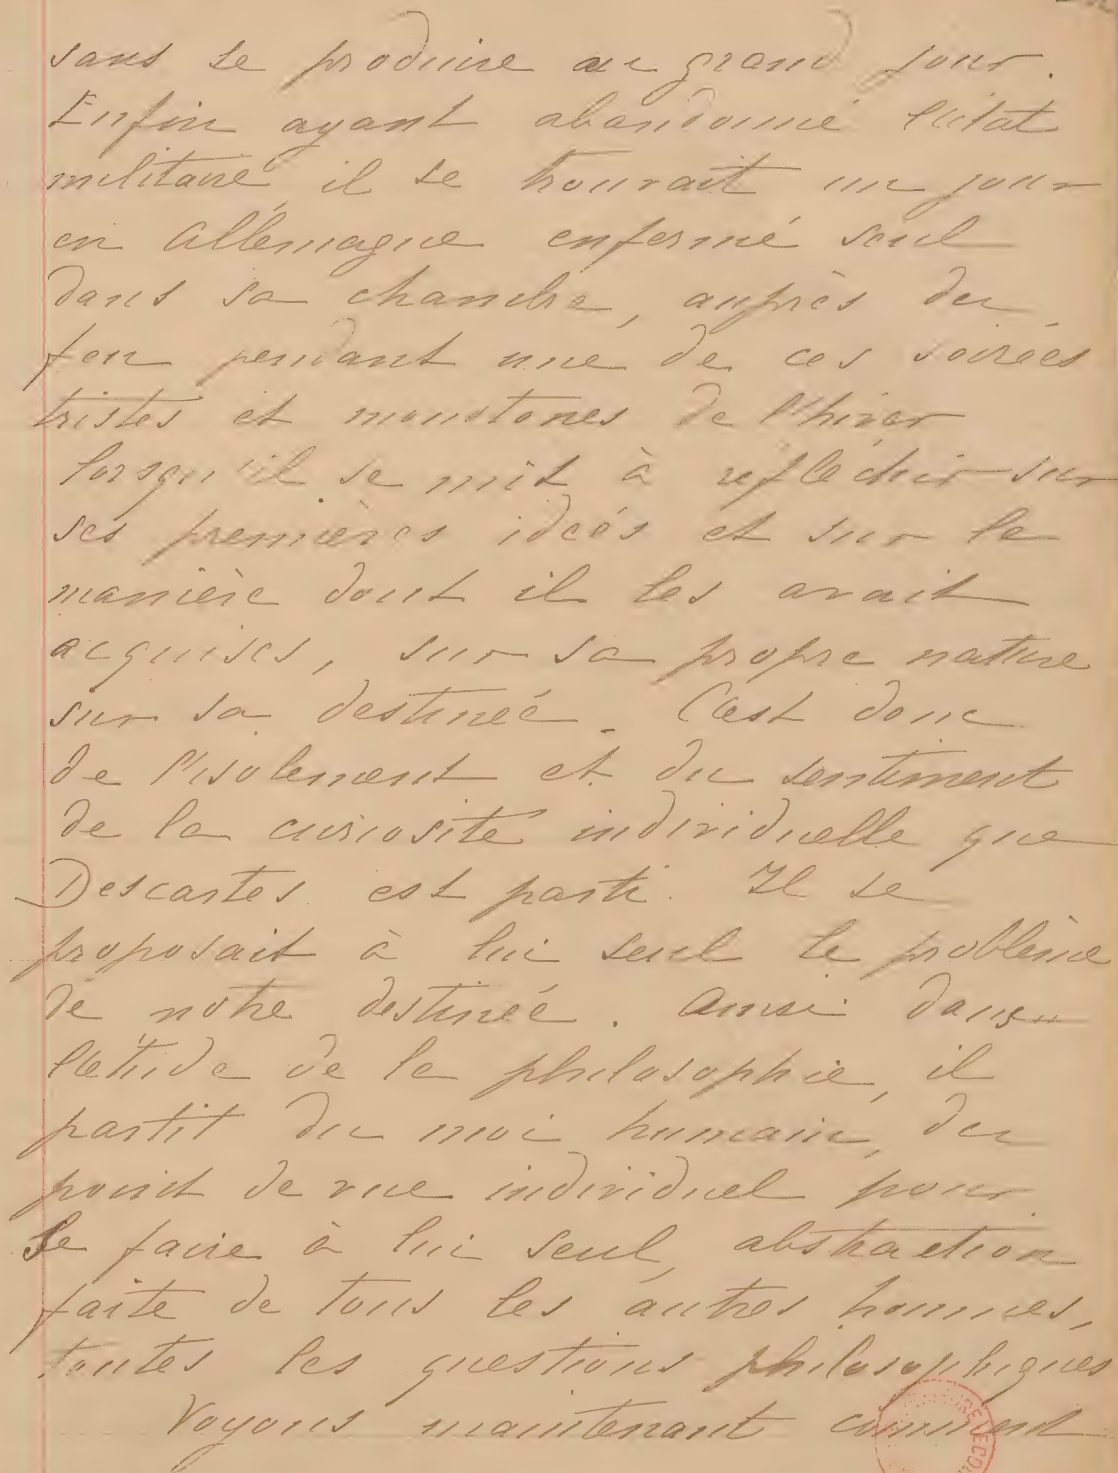 sans se produire au grand jour.
Enfin ayant abandonné l'état
militaire, il se trouvait un jour
en Allemagne enfermé seul
dans sa chambre, auprès du
feu pendant une de ces soirées
tristes et monotones de l'hiver
lorsqu'il se mit à refléchir sur
ses premières idées et sur la
manière dont il les avait
acquises, sur sa propre nature
sur sa destinée. C'est donc
de l'isolement et du sentiment
de la curiosité individuelle que
Descartes est parti. Il se
proposait à lui seul le problème
de notre destinée. Ainsi dans
l'étude de la philosophie, il
partit du moi humain, du
point de vue individuel pour
se faire à lui seul, abstraction
faite de tous les autres hommes,
toutes les questions philosophiques
Voyons maintenant comment